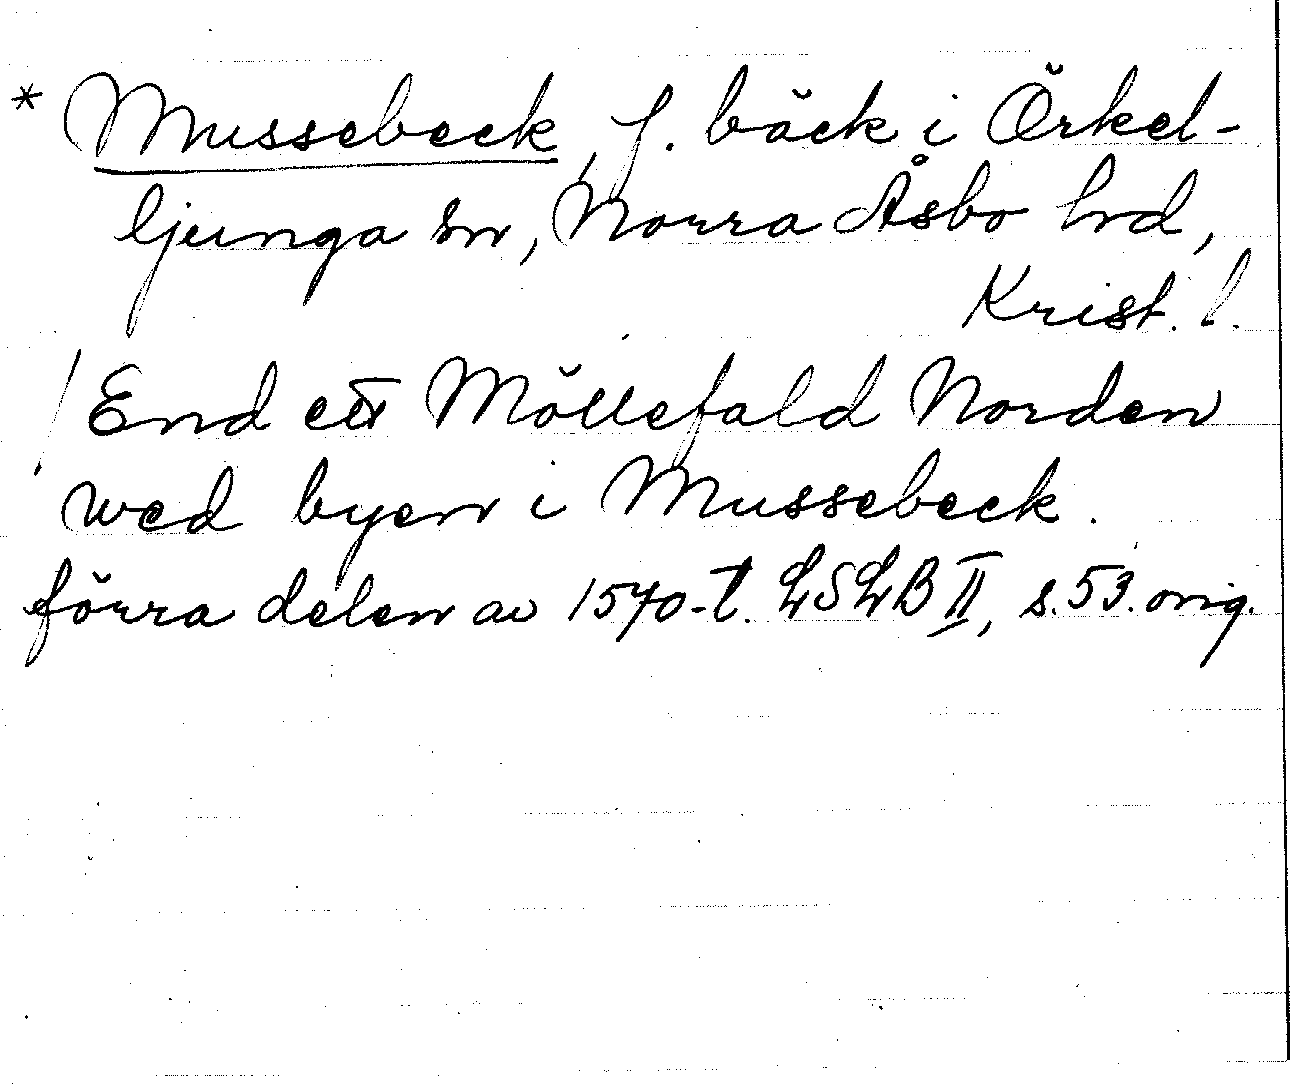 * Mussebeck, f. bäck i Örkel-
ljunga sn, Norra Åsbo hrd,
Krist. l.
/ End ett Möllefald Norden
wed byen i Mussebeck.
förra delen av 1570-t. LSLB II, s. 53. orig.